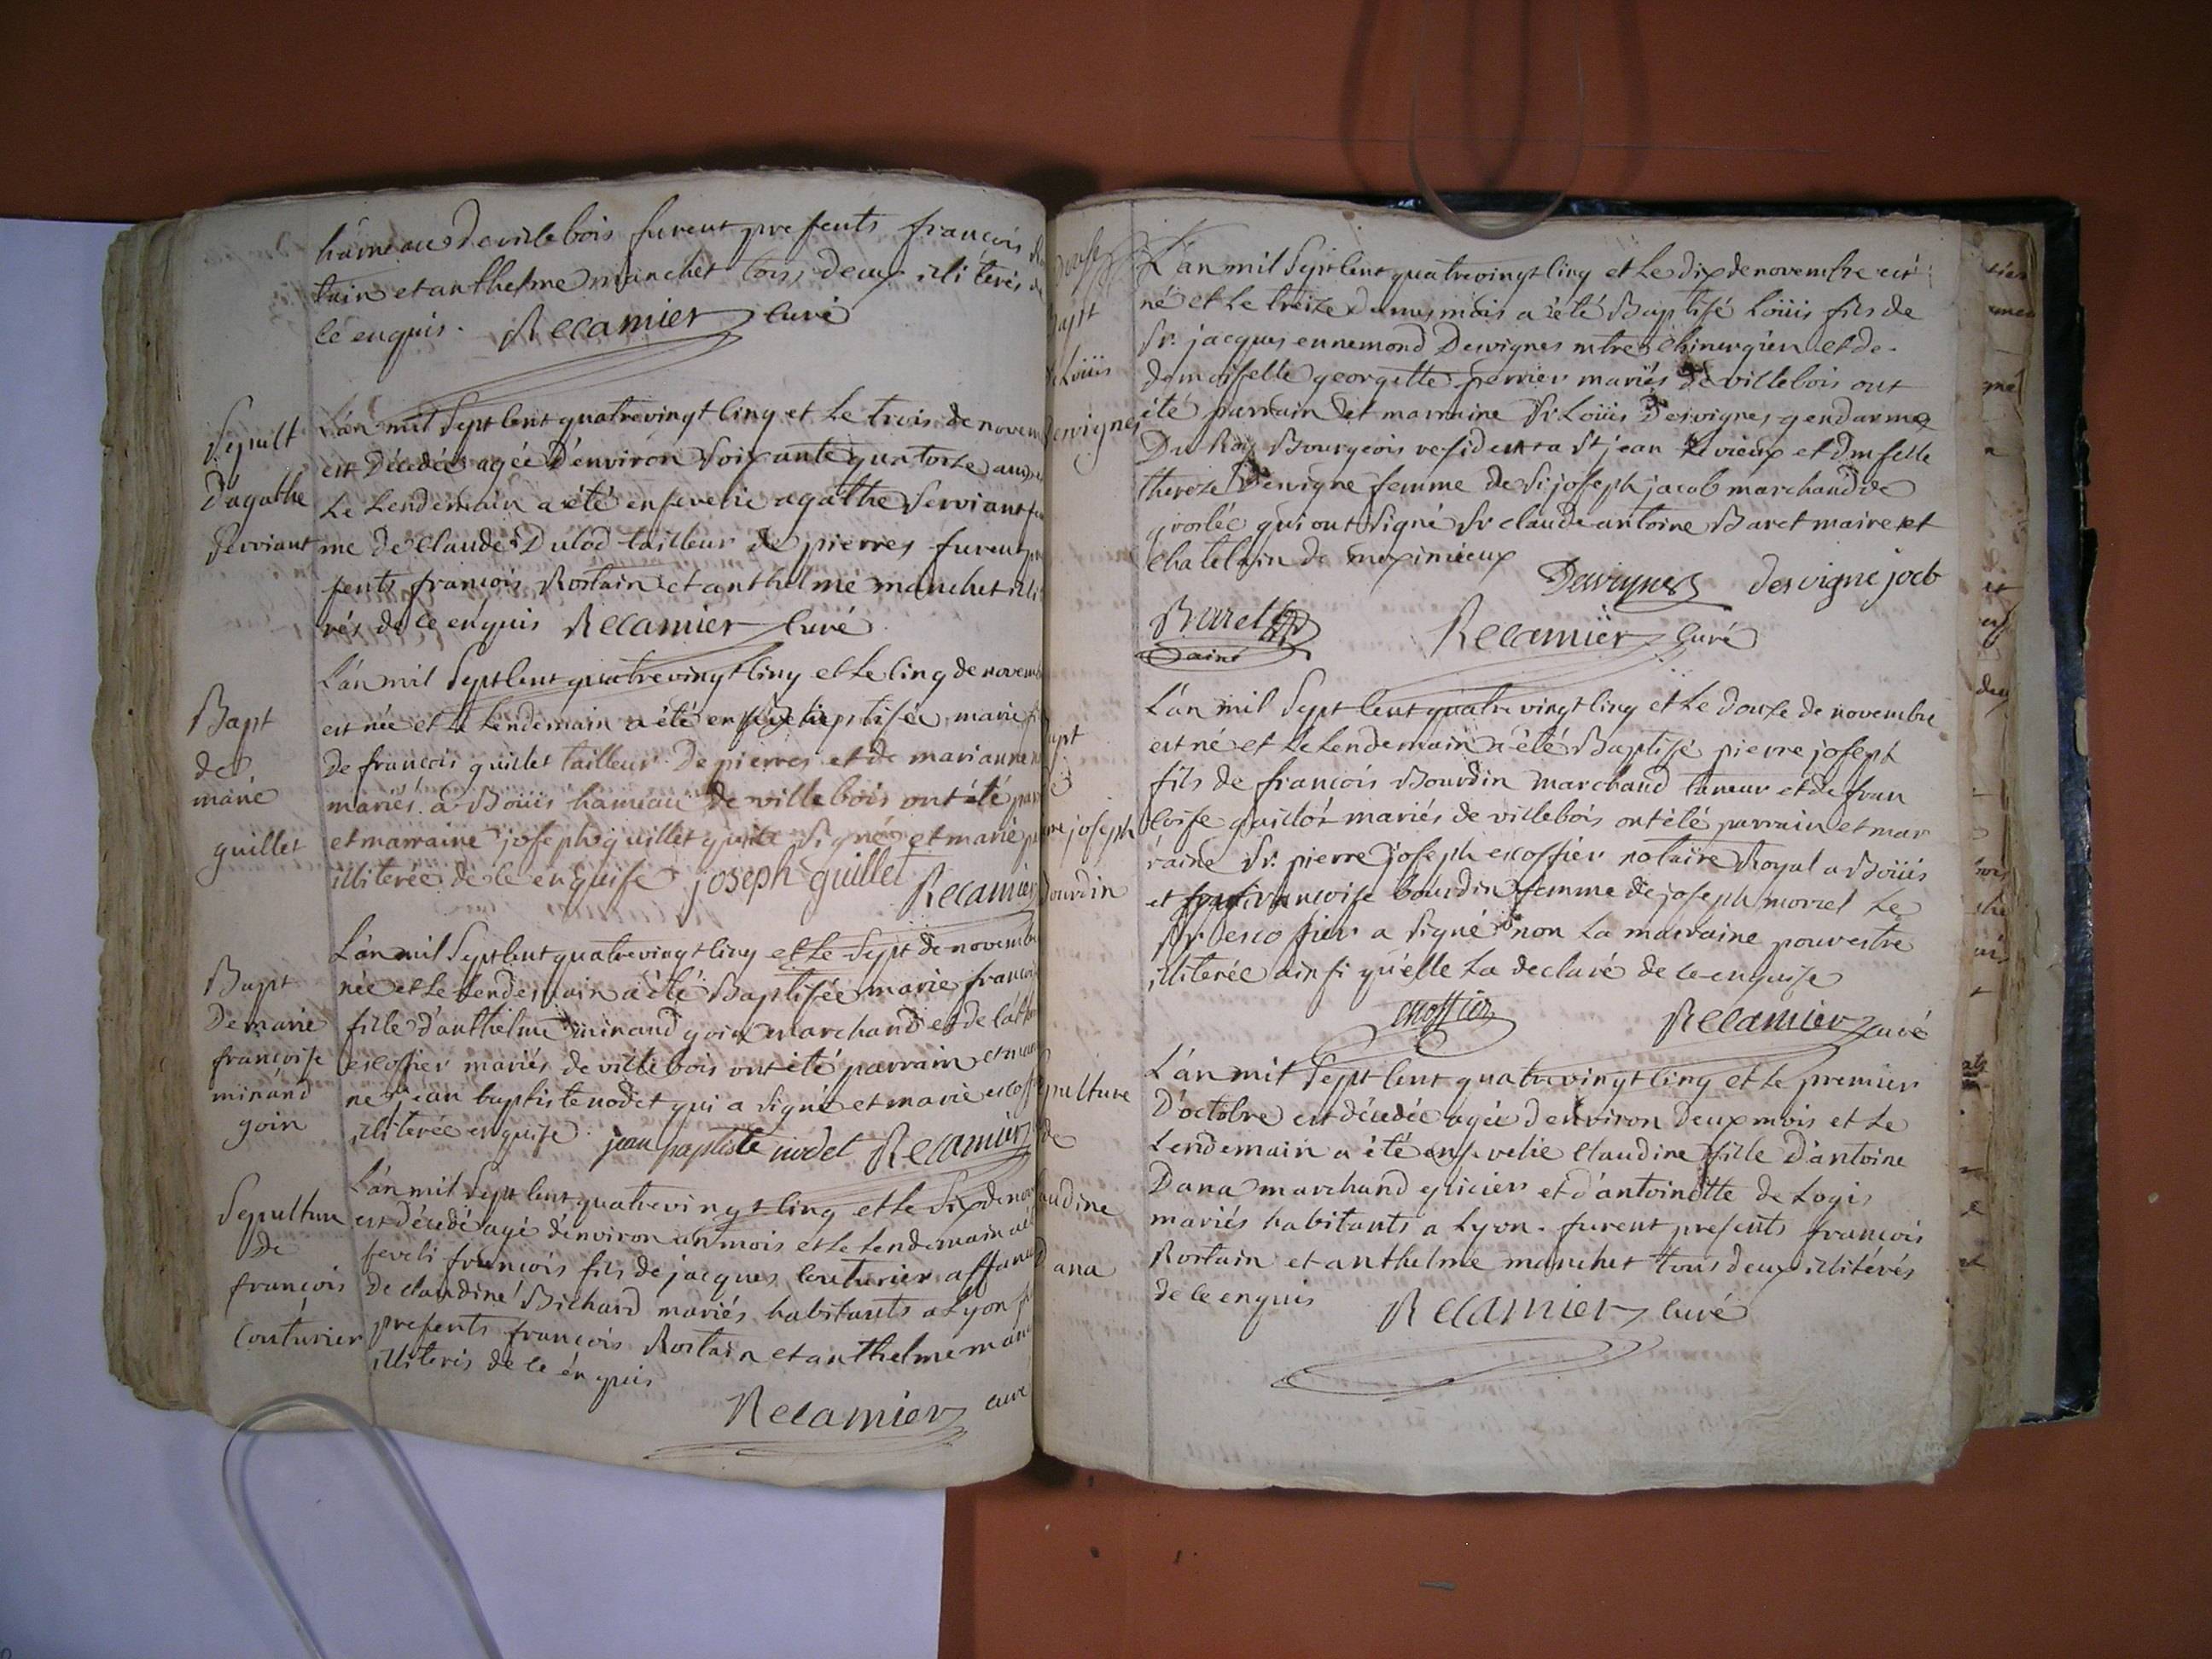 hameau de villebois furent presents françois
tain et anthelme manchet tous deux illiterés
cé enquis. Recamier curé
Sepult
d'agathe
serviant
L'an mil sept cent quatrevingt cinq et le trois de novem
est décédée agée d'environ soixante quatorze ans
le lendemain a été ensevelie agathe serviant
me de claude Dulod tailleur de pierres furent
sents françois Rostain et anthelme manchet illi
rés de ce enquis Recamier curé
Bapt
de
marie
guillet
L'an mil sept cent quatrevingt cinq et le cinq de novem
est née et le lendemain a été baptisée marie
de françois guillet tailleur de pierres et de marianne
mariés à Boüis hameau de villebois ont été
et marraine joseph guillet qui a signé et marie
illiterée de ce enquise joseph guillet
Recamier
Bapt
de marie
françoise
minand
goin
L'an mil sept cent quatrevingt cinq et le sept de novembre
née et le lendemain a été Baptisée marie françoi
fille d'anthelme minand goin marchand et de
escoffier mariés de villebois ont été parrain et mar
ne jean baptiste nodet qui a signé et marie escoff
illiterée enquise jean baptiste nodet Recamier
Sepulture
de
françois
Couturier
L'an mil sept cent quatrevingt cinq et le six de nov
est décédé agé d'environ un mois et le lendemain a
seveli françois fils de jacques couturier affaneur
de claudine Bichard mariés habitants a Lyon
presents françois Rostain et anthelme man
illiteris de ce enquis
Recamier curé
bapt
de Loüis
Desvignes
L'an mil sept cent quatrevingt cinq et le dix de novembre est
né et le treize du mes mois a été Baptisé Loüis fils de
Sr. jacques ennemond Desvignes mtre chirurgien et de
demoiselle georgette perrier mariés de villebois ont
été parrain et marraine Sr Loüis Desvignes gendarme
Du Roy Bourgeois resident a St jean le vieux et dmselle
thereze Devigne femme de Sr joseph jacob marchand de
groslée qui ont signé Sr claude antoine Baret maire et
chatelain de meximieux
Desvignes desvigne jocb
Baret
ainé
Recamier curé
bapt
de
pierre joseph
Bourdin
L'an mil sept cent quatre vingt cinq et le douze de novembre
est né et le lendemain a été Baptisé pierre joseph
fils de françois Bourdin marchand taneur et de fran
coise guillot mariés de villebois ont été parrain et mar
raine Sr. pierre joseph escoffier notaire Royal a Boüis
et françoise bourdin femme de joseph morrel Le
Sr. escoffier a signé non la marraine pour estre
illiterée ainsi qu'elle la declaré de ce enquise
escoffier Recamier curé
Sepulture
de
Claudine
Dana
L'an mil sept cent quatrevingt cinq et le premier
D'octobre est décédée agée d'environ deux mois et le
Lendemain a été ensevelie claudine fille d'antoine
Dana marchand epicier et d'antoinette de Logis
mariés habitants a Lyon. furent presents françois
Rostain et anthelme manchet tous deux illitérés
de ce enquis Recamier curé